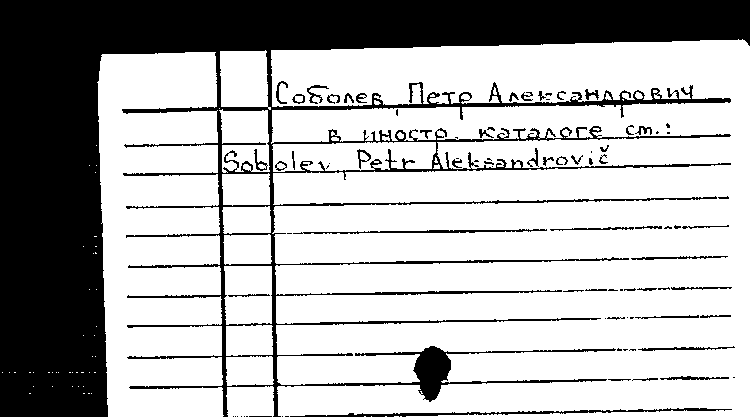 Соболев, Петр Александрович
в иностр. каталоге см.:
Sobolev, Petr Aleksandrovič